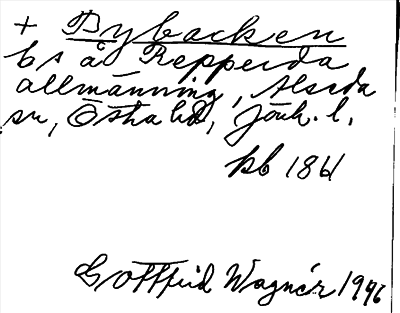 + Bybacken
bs å Repperda
allmänning, Alseda
sn, Östra hd, Jönk. l.
kb 1861
Gottfrid Wagnér 1946